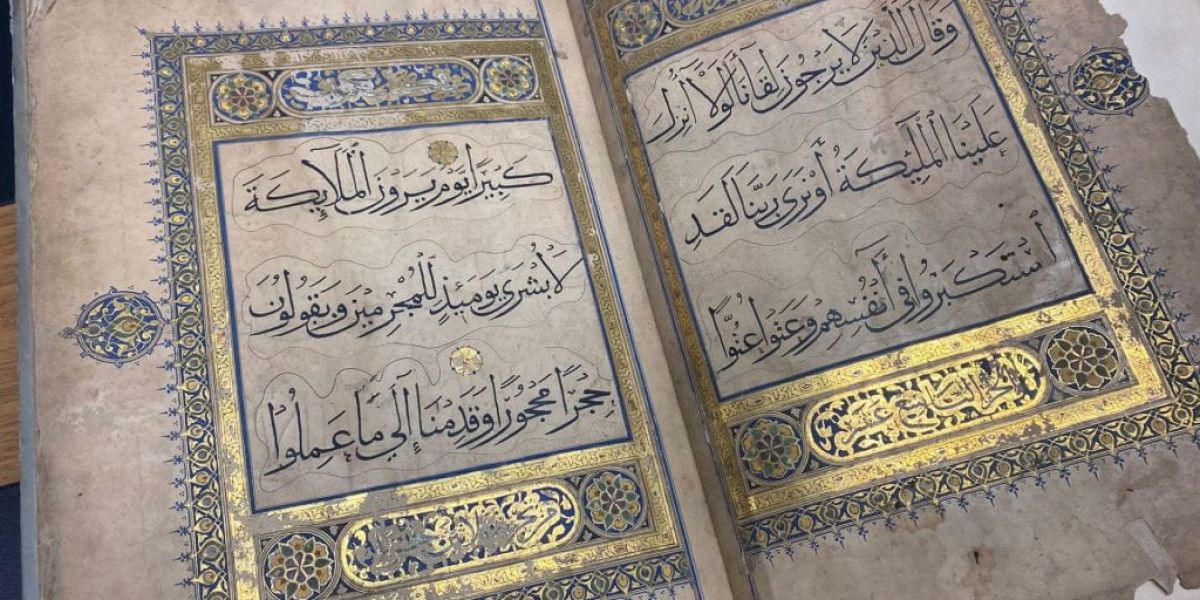 وَقَالَ الَّذِينَ لَا يَرْجُونَ لِقَانَا لَوْلَا أُنْزِلَ
عَلَيْنَا الْمَلَئِكَةُ أَوْ نَرَى رَبَّنَا لَقَدِ
اسْتَكْبَرُوا فِي أَنْفُسِهِمْ وَعَتَوْا عُتُوًّا
الجزء التاسع عشر
كَبِيرًا يَوْمَ يَرَوْنَ الْمَلَايِكَةَ
لَا بُشْرَى يَوْمَئِذٍ لِلْمُجْرِمِينَ وَيَقُولُونَ
حِجْرًا مَحْجُورًا وَقَدِمْنَا إِلَى مَا عَمِلُوا